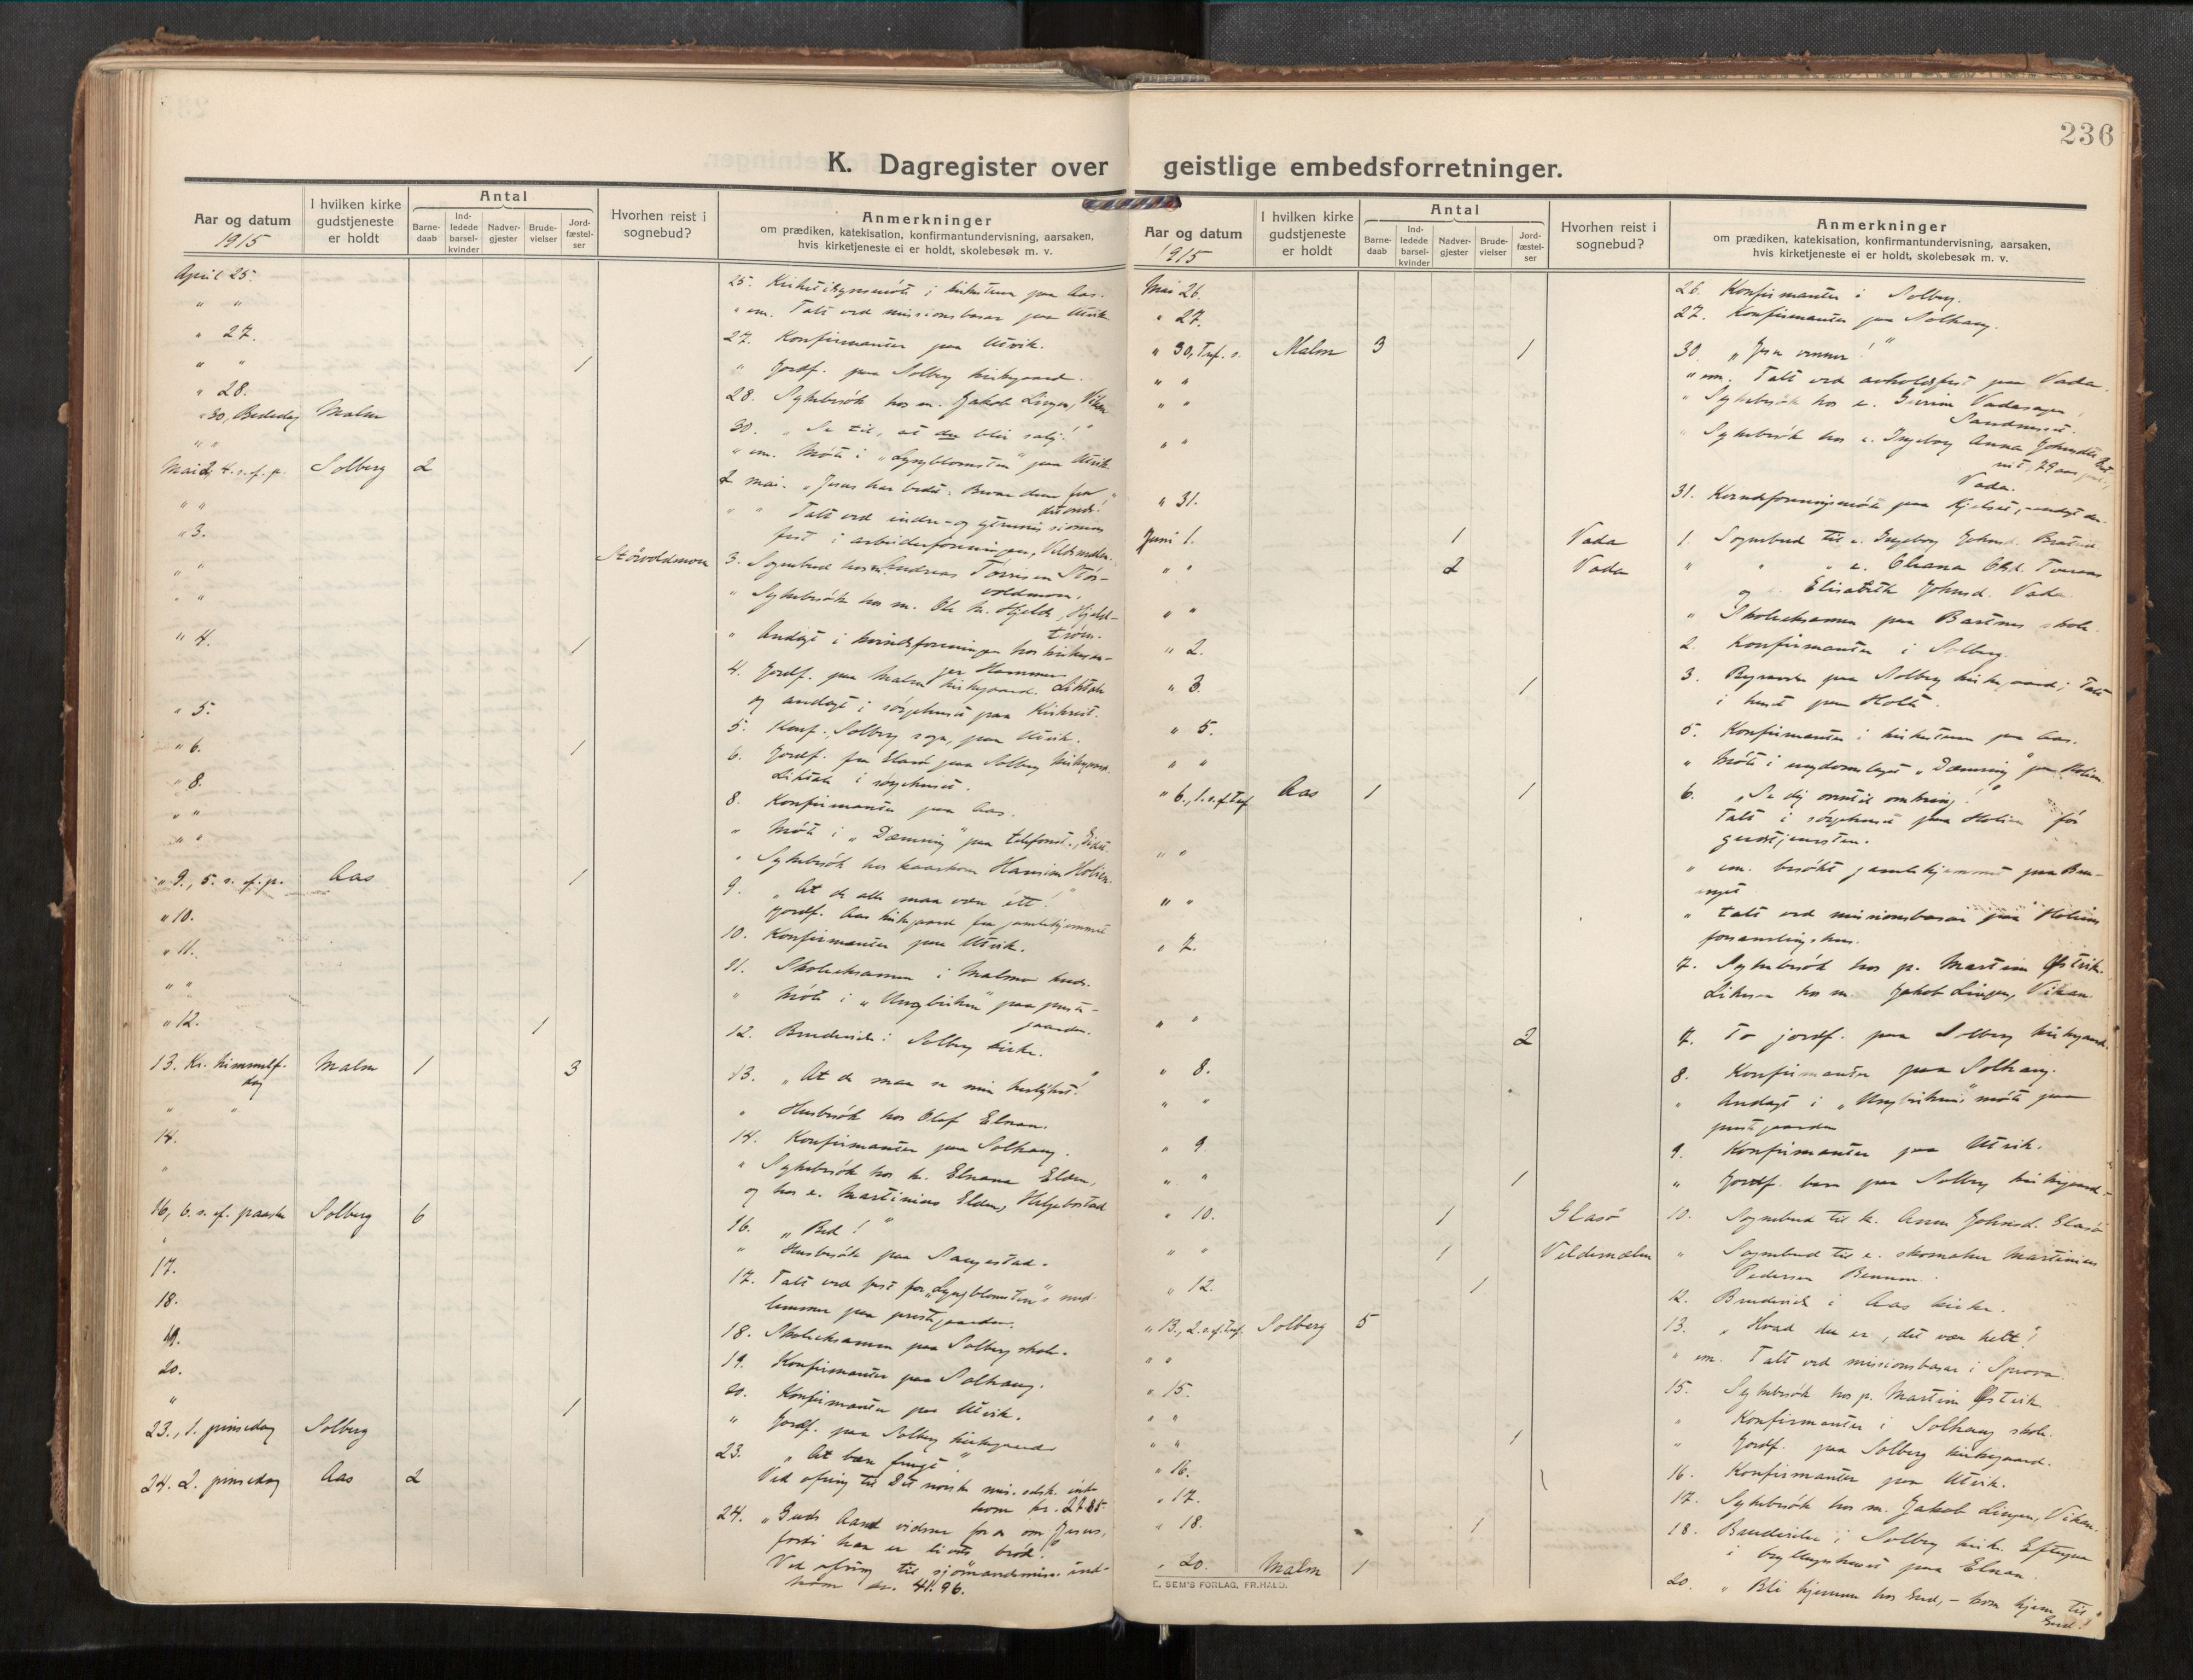 236
K. Dagregister over geistlige embedsforretninger.
Aar og datum
1915
I hvilken kirke
gudstjeneste
er holdt
Antal
Barne-
daab
Ind-
ledede
barsel-
kvinder
Nadver-
gjester
Brude-
vielser
Jord-
fæstel-
ser
Hvorhen reist i
sognebud?
Anmerkninger
om prædiken, katekisation, konfirmantundervisning, aarsaken,
hvis kirketjeneste ei er holdt, skolebesøk m. v.
April 25. 25. Kirketilsynsmöte i kirkestuen paa Aas.
" " " em. Talt ved missionsbasar paa Utvik
" 27. 27. Konfirmanter paa Utvik.
" " 1 " Jordf. paa Solberg kirkegaard.
" 28. 28. Sykebesök hos m. Jakob Lingen, Vikan
" 30, Bededag Malm 30. "Se til, at du blir salig!"
" " " em. Möte i "Lyngblomsten" paa Utvik
Mai 2, 4. s. ef. p. Solberg 2 2 mai. "Jesus har bedt: Bevar dem fra
det onde!"
" " " " Talt ved indre- og
fest i arbeiderforeningen, Veldemelen.
" 3. Störvoldmoen 3. Sognebud hos Andreas Torrisen Stör-
voldmoen.
" " " Sykebesök hos m. Ole Kr. Hjelde, Hjeld-
tröen.
" " " Andagt i kvindeforeningen hos kirkesan-
ger Hammer
" 4. 1 4. Jordf. paa Malm kirkegaard. Liktale
og andagt i sörgehuset paa Kirkreit.
" 5. 5. Konf., Solberg sogn, paa Utvik.
" 6. 1 6. Jordf. fra Elnan paa Solberg kirkegaard.
Liktale i sörgehuset.
" 8. 8. Konfirmanter paa Aas.
" " " Möte i "Dæmring" paa telefonst.,
" " " Sykebesök hos Hansine Holien.
" 9., 5. s. ef. p. Aas 1 9. "At de alle maa være ett!"
Jordf. Aas kirkegaard fra gamlehjemmet
" 10. 10. Konfirmanter paa Utvik.
" 11. 11. Skoleeksamen i Malmo kreds.
" " " Möte i "Ungbirken" paa preste-
gaarden.
" 12. 1 12. Brudevielse i Solberg kirke.
13. Kr. himmelf.
dag Malm 1 3 13. "At de maa se min herlighet!"
" " " Husbesök hos Olaf Elnan.
14. 14. Konfirmanter paa Solhaug.
" " Sykebesök hos k. Elnana Elden,
og hos e. Martinius Elden, Heljebostad
16, 6. s. ef. paaske Solberg 6 16. "Bed!"
" " Husbesök paa Saugestad.
17. 17. Talt ved fest for "Lyngblomsten"s med-
lemmer paa prestgaarden.
18. 18. Skoleeksamen paa Solberg skole.
19. 19. Konfirmanter paa Solhaug.
20. 20. Konfirmanter paa Utvik.
" 1 " Jordf. paa Solberg kirkegaard
23., 1. pinsedag Solberg 23. "At bære frugt."
Ved ofring til Det norske mis. selsk. ind-
kom kr.
24. 2. pinsedag Aas 2 24. "Guds Aand vidner for os om Jesus,
fordi han er livets bröd!"
Ved ofring til sjömandsmiss. ind-
kom kr. 41.96.
Aar og datum
1915
I hvilken kirke
gudstjeneste
er holdt
Antal
Barne-
daab
Ind-
ledede
barsel-
kvinder
Nadver-
gjester
Brude-
vielser
Jord-
fæstel-
ser
Hvorhen reist i
sognebud?
Anmerkninger
om prædiken, katekisation, konfirmantundervisning, aarsaken,
hvis kirketjeneste ei er holdt, skolebesøk m. v.
Mai 26. 26. Konfirmanter i Solberg.
" 27. 27. Konfirmanter paa Solhaug.
" 30, Tref. s. Malm 3 1 30. "Jesu venner!"
" " " em. Talt ved avholdsfest paa Vada.
" " " Sykebesök hos e. Gurine Vadasagen,
Sandneset.
" " " Sykebesök hos e. Ingeborg Anna Johnsdtr.
79 aar
Vada.
" 31. 31. Kvindeforeningsmöte paa Kjelset,
Juni 1. 1 Vada 1. Sognebud til e. Ingeborg Johnsd.
" " 2 Vada " " " e. Eliana Olsd. Tveraas
og Elisabeth Johnsd. Vada.
" " " Skoleeksamen paa Bartnes skole.
" 2. 2. Konfirmanter i Solberg.
" 3. 1 3. Begravelse paa Solberg kirkegaard; talt
i huset paa Holte.
" 5. 5. Konfirmanter i kirkestuen paa Aas.
" " " Möte i ungdomslaget "Dæmring" paa Holien
" 6., 1. s. ef. Tref. Aas 1 1 6. "Se dig omkring!"
Talt i sörgehuset paa Holien för
gudstjenesten.
" " " em. besökt gamlehjemmet paa
" " " talt ved missionsbasar paa Holiens
forsamlingshus.
" 7. 7. Sykebesök hos p. Martin Östvik.
hos m. Jakob Lingen, Vikan.
" " 2 7. To jordf. paa Solberg kirkegaard.
" 8. 8. Konfirmanter paa Solhaug.
" " " Andagt i "Ungbirken"s möte paa
prestgaarden
" 9. 9. Konfirmanter paa Utvik.
" " 1 " Jordf. barn paa Solberg kirkegaard.
" 10. 1 Elasö 10. Sognebud til k. Anne Johnsd. Elasö
" " 1 Veldemelen " Sognebud til e. skomaker Martinius
Pedersen Bennum.
" 12. 1 12. Brudevielse i Aas kirke.
" 13., 2. s. ef. Tref. Solberg 5 13. "Hvad du er, det vær helt!"
" " " em. Talt ved missionsbasar i Sprova.
" 15. 15. Sykebesök hos p. Martin Östvik
" " " Konfirmanter i Solhaug skole.
" " 1 " Jordf. paa Solberg kirkegaard.
" 16. 16. Konfirmanter paa Utvik.
" 17. 17. Sykebesök hos m. Jakob Lingen, Vikan.
" 18. 1 18. Brudevielse i Solberg kirke.
i bryllupshuset paa Elnan.
" 20. Malm 1 20. "Bli hjemme hos Gud, – kom hjem til
Gud!"
E. SEM'S FORLAG, FR.HALD.